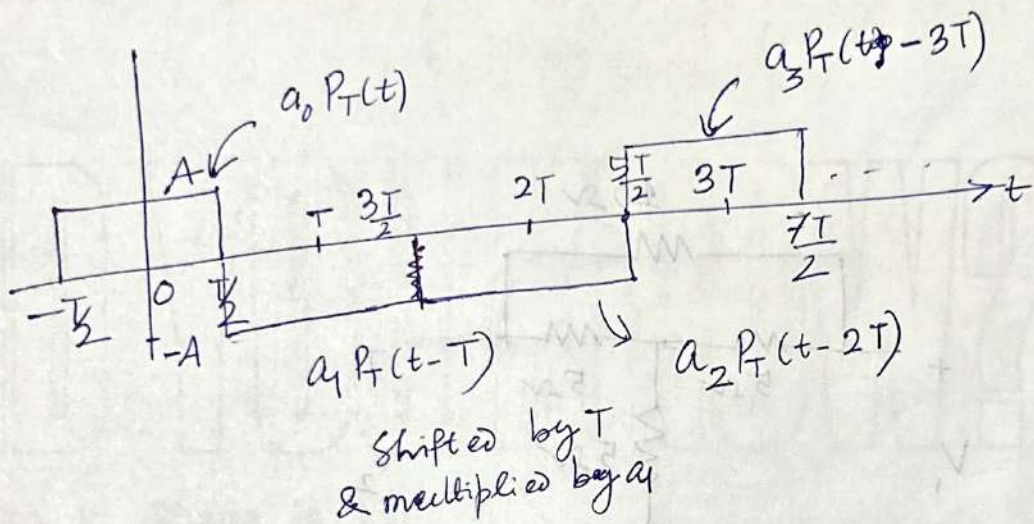 a₃ P_T(t - 3T)
a₀ P_T(t)
A
T 3T/2 2T 5T/2 3T ... t
-T/2 0 T/2 7T/2
-A
a₁ P_T(t-T) a₂ P_T(t-2T)
Shifted by T
& multiplied by a₁